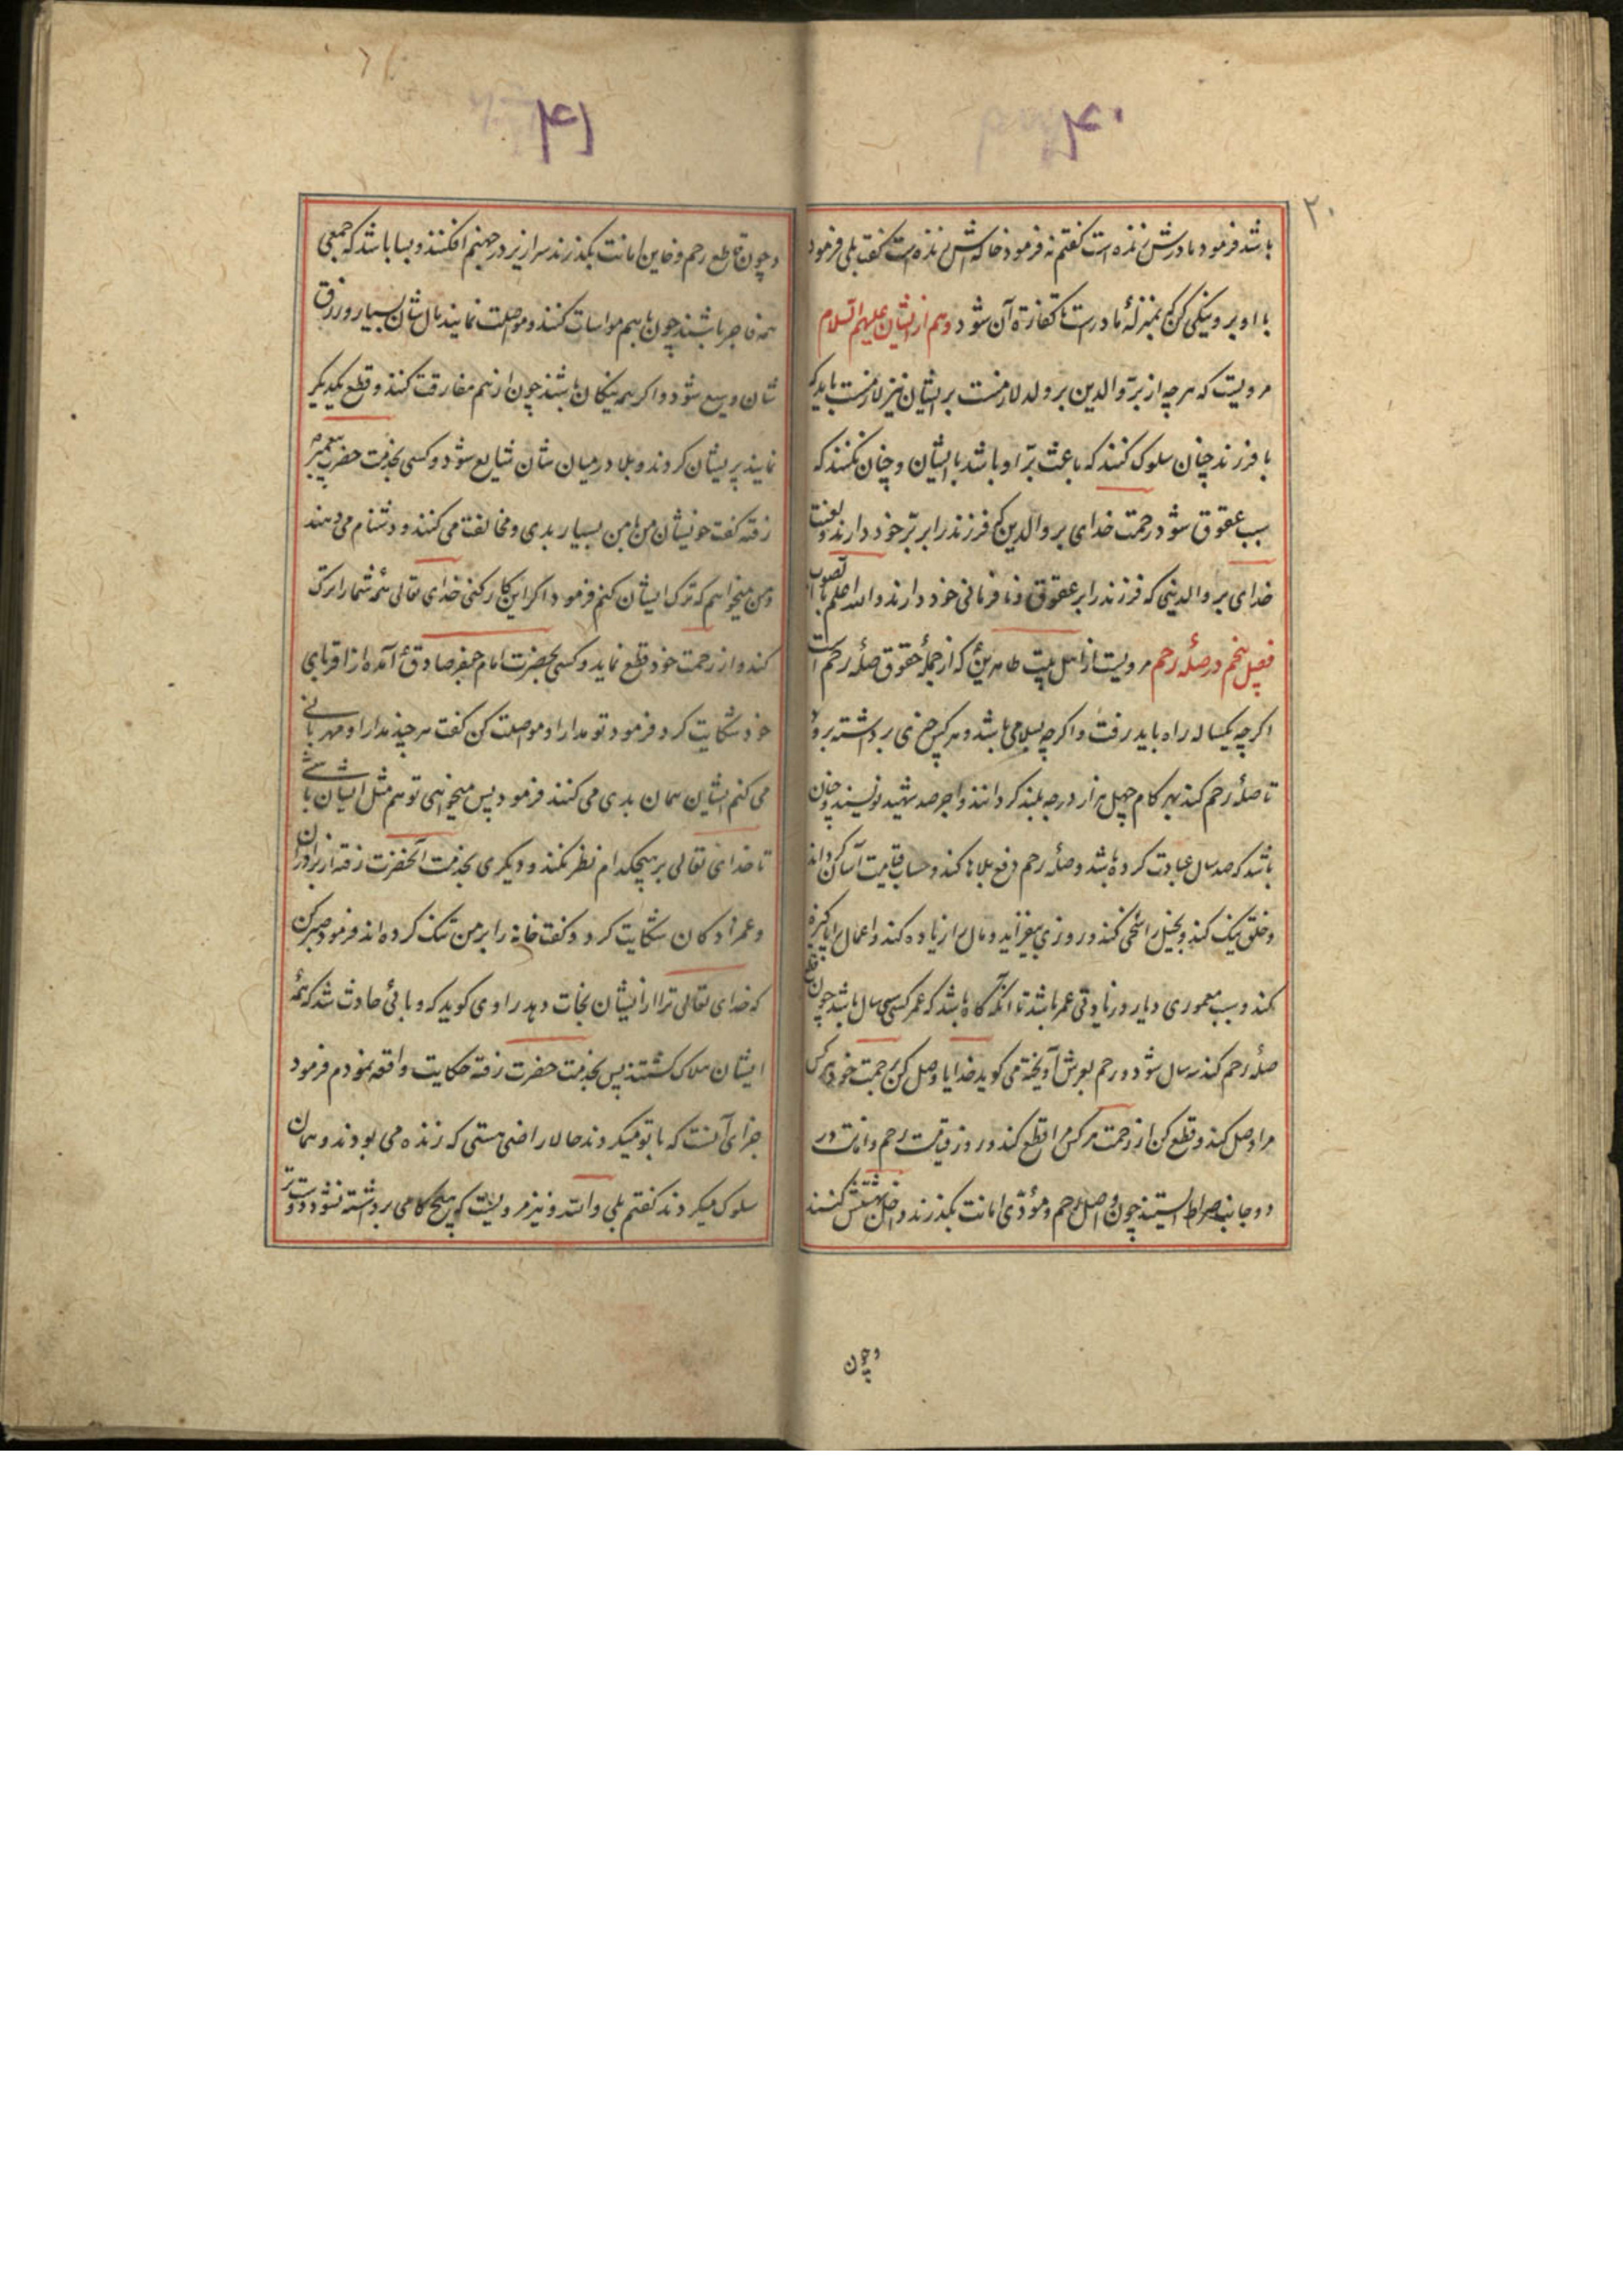 ۴۰
۲۰
باشد فرمود مادرش زنده است گفتم نه فرمود خاله‌اش زنده است گفت بلی فرمود
با او بر و نیکی کن که بمنزلهٔ مادرست تا کفارهٔ آن شود و هم از ایشان علیهم السلام
مرویست که هر چه از بر والدین بر ولد لازمست بر ایشان نیز لازمست باید که
با فرزند چنان سلوک کنند که باعث برّ او باشد با ایشان و چنان نکنند که
سبب عقوق شود رحمت خدای بر والدینی که فرزند را بر برّ خود دارند و لعنت
خدای بر والدینی که فرزند را بر عقوق و نافرمانی خود دارند والله اعلم بالصواب
فصل پنجم در صلهٔ رحم مرویست از اهل بیت طاهرین که از جملهٔ حقوق صلهٔ رحم است
اگر چه یکساله راه باید رفت و اگر چه بسلامی باشد و هر کس چیزی برداشته برود
تا صلهٔ رحم کند بهر کام چهل هزار درجه بلند کردانند و اجر صد شهید نویسند و چنان
باشد که صد سال عبادت کرده باشد و صلهٔ رحم دفع بلاها کند و حساب قیامت آسان کرداند
و خلق نیک کند و بخیل را سخی کند و روزی بیفزاید و مال را زیاده کند و اعمال را پاکیزه
کند و سبب معموری دیار و زیادتی عمر باشد تا آنکه گاه باشد که عمر کسی سال باشد چون
صلهٔ رحم کند سال شود و رحم بعرش آویخته می کوید خدایا وصل کن برحمت خود هر کس
مرا وصل کند و قطع کن از رحمت هر کس مرا قطع کند و روز قیامت رحم و امانت در
دو جانب صراط ایستند چون واصل رحم و مؤدّی امانت بگذرند داخل بهشتش کنند
و چون
۴۱
و چون قاطع رحم و خاین امانت بگذرند سرازیر در جهنم افکنند و بسا باشد که جمعی
همه فاجر باشند چون با هم مواسات کنند و مواصلت نمایند مال شان بسیار و رزق
شان وسیع شود و اگر همه نیکان باشند چون از هم مفارقت کنند و قطع یکدیگر
نمایند پریشان کردند و بلا در میان شان شایع شود و کسی بخدمت حضرت پیغمبر
رفته گفت خویشان من با من بسیار بدی و مخالفت می کنند و دشنام می دهند
و من میخواهم که ترک ایشان کنم فرمود اگر این کار کنی خدای تعالی همه شما را ترک
کند و از رحمت خود قطع نماید و کسی بحضرت امام جعفر صادق آمده از اقربای
خود شکایت کرد فرمود تو مدارا و مواصلت کن گفت هر چند مدارا و مهربانی
می کنم ایشان همان بدی می کنند فرمود پس میخواهی تو هم مثل ایشان باشی
تا خدای تعالی بر هیچکدام نظر نکند و دیگری بخدمت آنحضرت رفته از برادران
و عمزادکان شکایت کرد و گفت خانه را بر من تنک کرده اند فرمود صبر کن
که خدای تعالی ترا از ایشان نجات دهد راوی کوید که وبائی حادث شد که همهٔ
ایشان هلاک گشتند پس بخدمت حضرت رفته حکایت واقعه نمودم فرمود
جزای آنست که با تو میکردند حالا راضی هستی که زنده می بودند و همان
سلوک میکردند گفتم بلی والله و نیز مرویست که هیچ کامی برداشته نشود